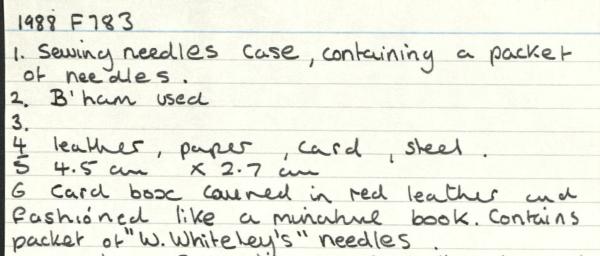 1988 F783
1. Sewing needles case, containing a packet
of needles.
2. B'ham used
3.
4 leather, paper, card, steel.
5 4.5 cm x 2.7 cm
6 Card box covered in red leather and
fashioned like a minature book. Contains
packet of "W. Whiteley's" needles.